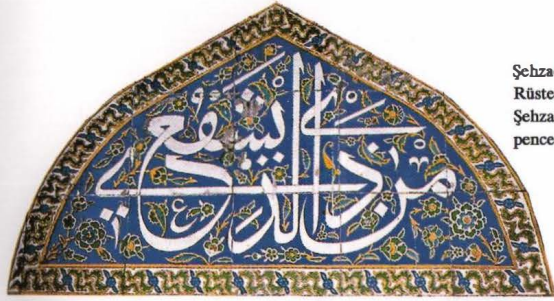 من ذا الذي يشفع
Şehza
Rüste
Şehza
pence